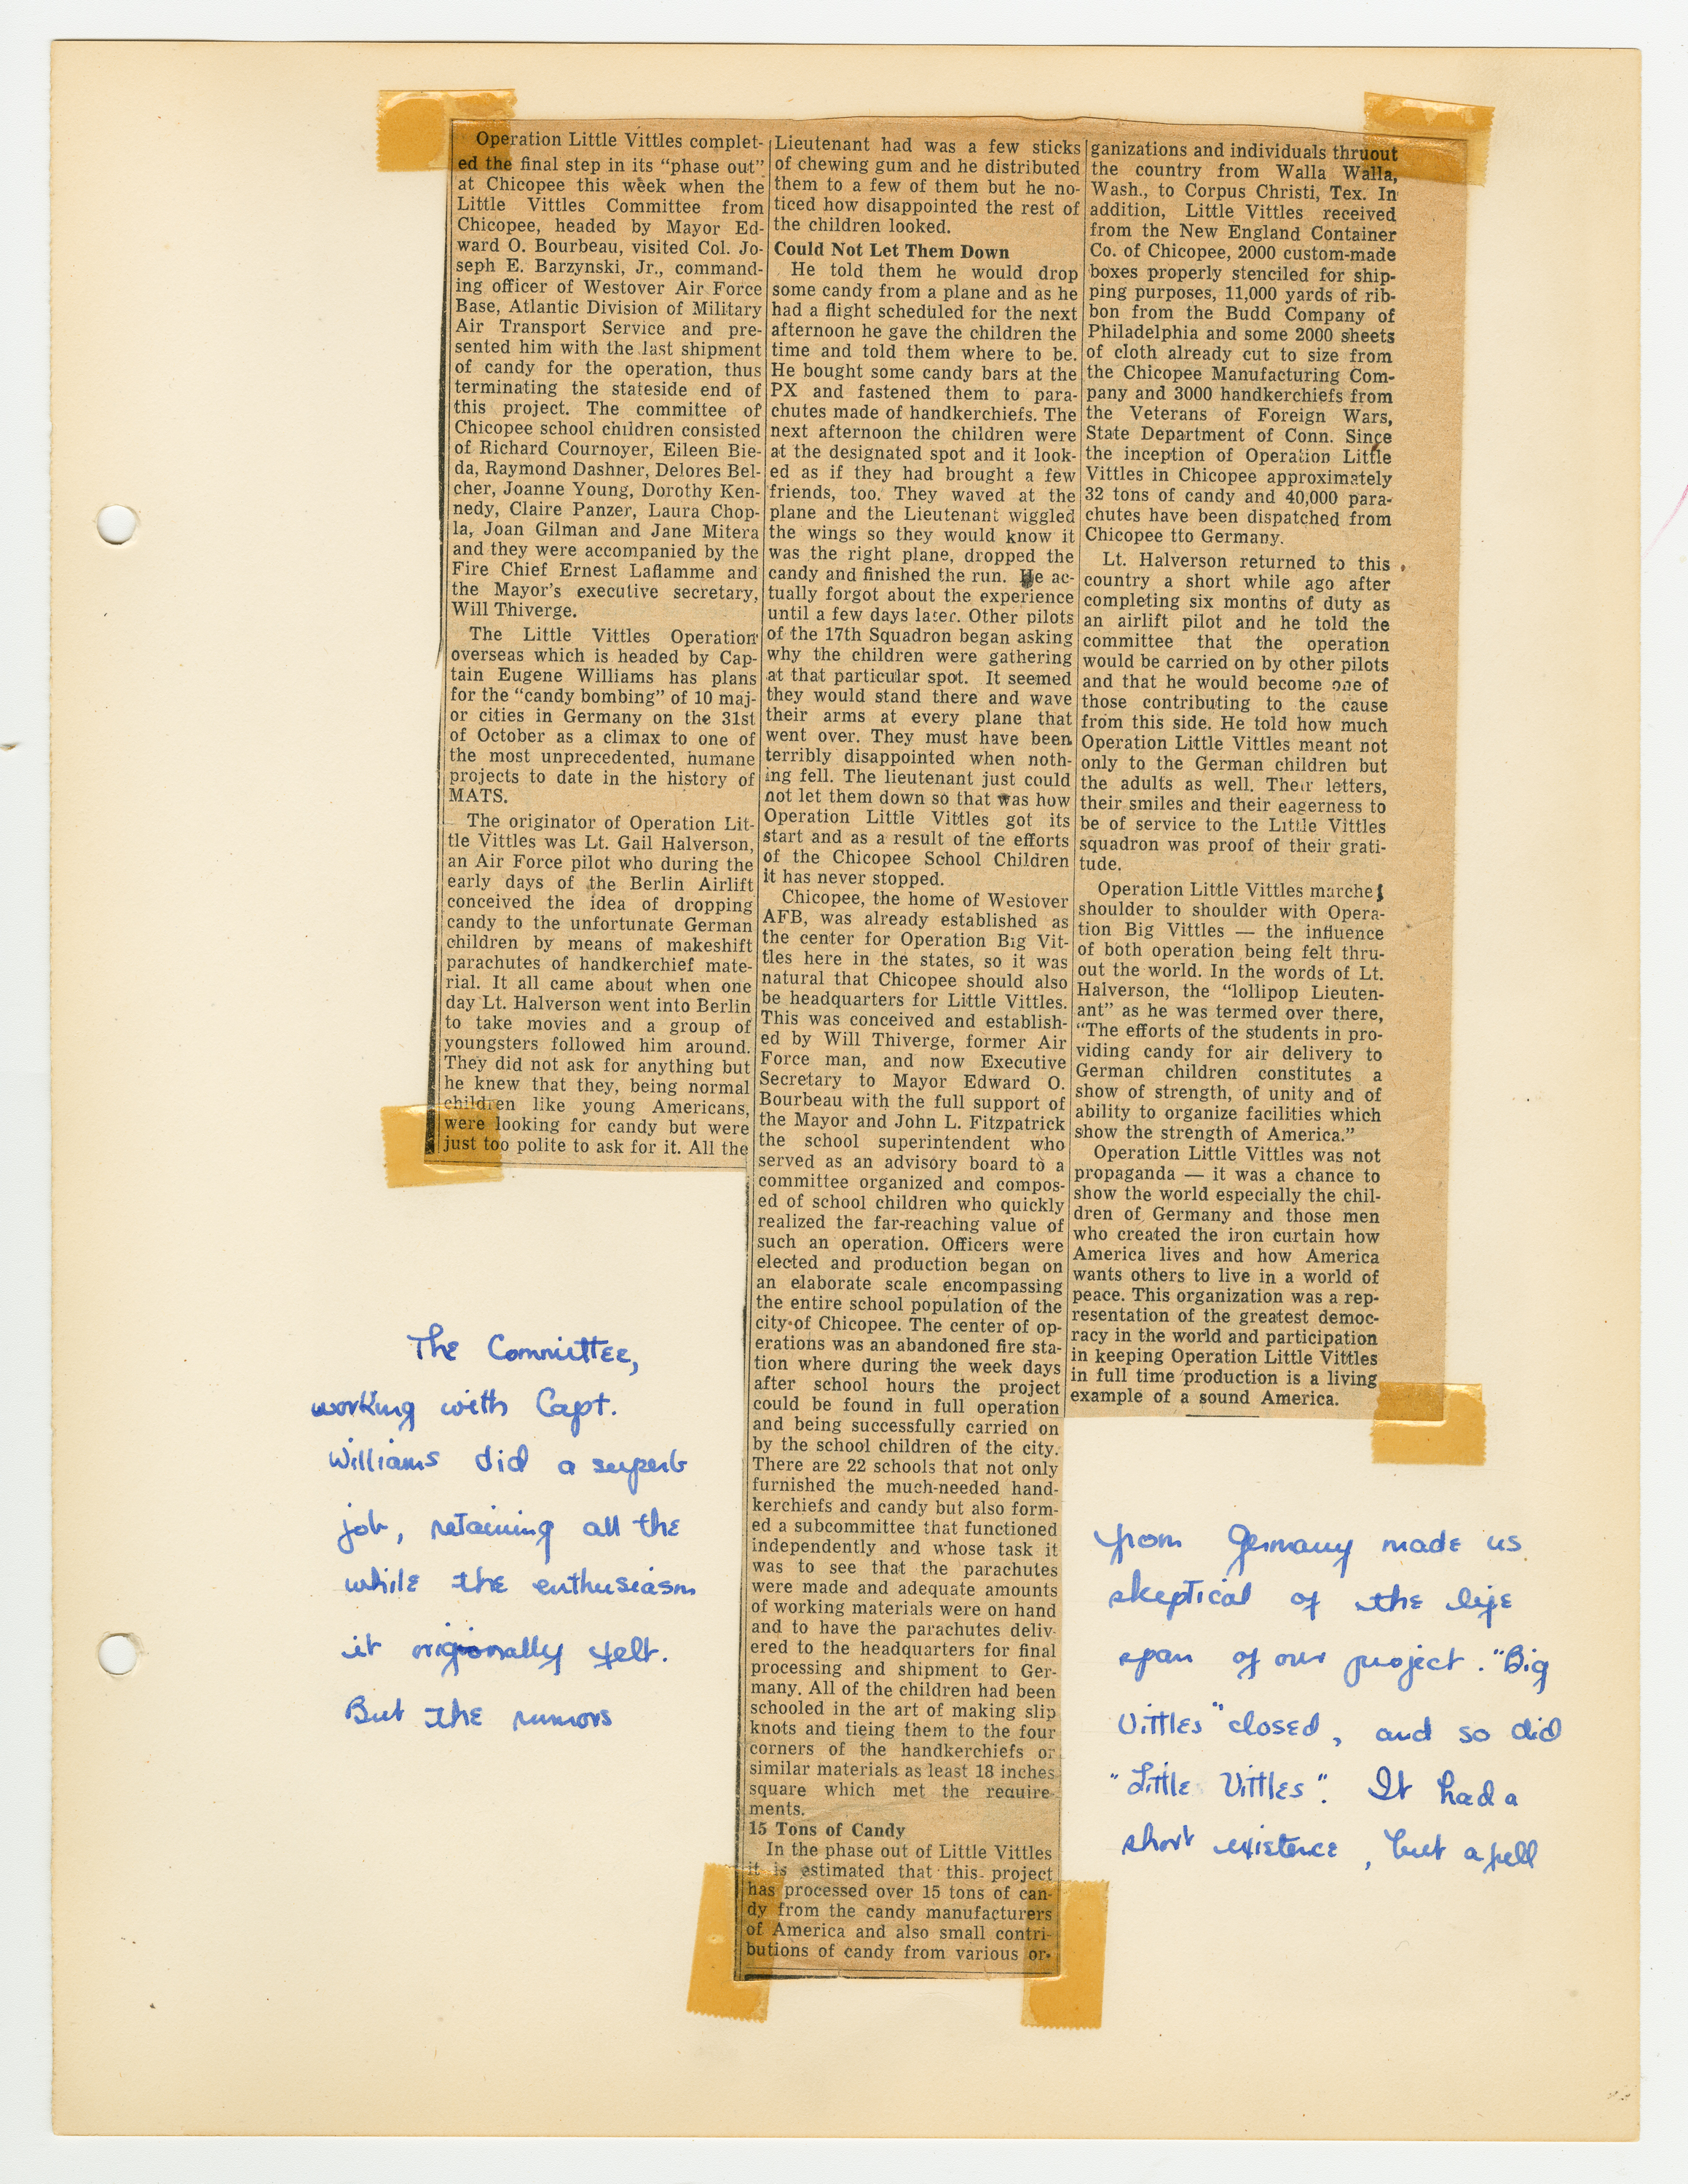 Operation Little Vittles complet-
ed the final step in its “phase out”
at Chicopee this week when the
Little Vittles Committee from
Chicopee, headed by Mayor Ed-
ward O. Bourbeau, visited Col. Jo-
seph E. Barzynski, Jr., command-
ing officer of Westover Air Force
Base, Atlantic Division of Military
Air Transport Service and pre-
sented him with the last shipment
of candy for the operation, thus
terminating the stateside end of
this project. The committee of
Chicopee school children consisted
of Richard Cournoyer, Eileen Bie-
da, Raymond Dashner, Delores Bel-
cher, Joanne Young, Dorothy Ken-
nedy, Claire Panzer, Laura Chop-
la, Joan Gilman and Jane Mitera
and they were accompanied by the
Fire Chief Ernest Laflamme and
the Mayor’s executive secretary,
Will Thiverge.
The Little Vittles Operation
overseas which is headed by Cap-
tain Eugene Williams has plans
for the “candy bombing” of 10 maj-
or cities in Germany on the 31st
of October as a climax to one of
the most unprecedented, humane
projects to date in the history of
MATS.
The originator of Operation Lit-
tle Vittles was Lt. Gail Halverson,
an Air Force pilot who during the
early days of the Berlin Airlift
conceived the idea of dropping
candy to the unfortunate German
children by means of makeshift
parachutes of handkerchief mate-
rial. It all came about when one
day Lt. Halverson went into Berlin
to take movies and a group of
youngsters followed him around.
They did not ask for anything but
he knew that they, being normal
children like young Americans,
were looking for candy but were
just too polite to ask for it. All the
Lieutenant had was a few sticks
of chewing gum and he distributed
them to a few of them but he no-
ticed how disappointed the rest of
the children looked.
Could Not Let Them Down
He told them he would drop
some candy from a plane and as he
had a flight scheduled for the next
afternoon he gave the children the
time and told them where to be.
He bought some candy bars at the
PX and fastened them to para-
chutes made of handkerchiefs. The
next afternoon the children were
at the designated spot and it look-
ed as if they had brought a few
friends, too. They waved at the
plane and the Lieutenant wiggled
the wings so they would know it
was the right plane, dropped the
candy and finished the run. He ac-
tually forgot about the experience
until a few days later. Other pilots
of the 17th Squadron began asking
why the children were gathering
at that particular spot. It seemed
they would stand there and wave
their arms at every plane that
went over. They must have been
terribly disappointed when noth-
ing fell. The lieutenant just could
not let them down so that was how
Operation Little Vittles got its
start and as a result of the efforts
of the Chicopee School Children
it has never stopped.
Chicopee, the home of Westover
AFB, was already established as
the center for Operation Big Vit-
tles here in the states, so it was
natural that Chicopee should also
be headquarters for Little Vittles.
This was conceived and establish-
ed by Will Thiverge, former Air
Force man, and now Executive
Secretary to Mayor Edward O.
Bourbeau with the full support of
the Mayor and John L. Fitzpatrick
the school superintendent who
served as an advisory board to a
committee organized and compos-
ed of school children who quickly
realized the far-reaching value of
such an operation. Officers were
elected and production began on
an elaborate scale encompassing
the entire school population of the
city of Chicopee. The center of op-
erations was an abandoned fire sta-
tion where during the week days
after school hours the project
could be found in full operation
and being successfully carried on
by the school children of the city.
There are 22 schools that not only
furnished the much-needed hand-
kerchiefs and candy but also form-
ed a subcommittee that functioned
independently and whose task it
was to see that the parachutes
were made and adequate amounts
of working materials were on hand
and to have the parachutes deliv-
ered to the headquarters for final
processing and shipment to Ger-
many. All of the children had been
schooled in the art of making slip
knots and tieing them to the four
corners of the handkerchiefs or
similar materials as least 18 inches
square which met the require-
ments.
15 Tons of Candy
In the phase out of Little Vittles
it is estimated that this project
has processed over 15 tons of can-
dy from the candy manufacturers
of America and also small contri-
butions of candy from various or-
ganizations and individuals thruout
the country from Walla Walla,
Wash., to Corpus Christi, Tex. In
addition, Little Vittles received
from the New England Container
Co. of Chicopee, 2000 custom-made
boxes properly stenciled for ship-
ping purposes, 11,000 yards of rib-
bon from the Budd Company of
Philadelphia and some 2000 sheets
of cloth already cut to size from
the Chicopee Manufacturing Com-
pany and 3000 handkerchiefs from
the Veterans of Foreign Wars,
State Department of Conn. Since
the inception of Operation Little
Vittles in Chicopee approximately
32 tons of candy and 40,000 para-
chutes have been dispatched from
Chicopee tto Germany.
Lt. Halverson returned to this
country a short while ago after
completing six months of duty as
an airlift pilot and he told the
committee that the operation
would be carried on by other pilots
and that he would become one of
those contributing to the cause
from this side. He told how much
Operation Little Vittles meant not
only to the German children but
the adults as well. Their letters,
their smiles and their eagerness to
be of service to the Little Vittles
squadron was proof of their grati-
tude.
Operation Little Vittles marched
shoulder to shoulder with Opera-
tion Big Vittles — the influence
of both operation being felt thru-
out the world. In the words of Lt.
Halverson, the “lollipop Lieuten-
ant” as he was termed over there,
“The efforts of the students in pro-
viding candy for air delivery to
German children constitutes a
show of strength, of unity and of
ability to organize facilities which
show the strength of America.”
Operation Little Vittles was not
propaganda — it was a chance to
show the world especially the chil-
dren of Germany and those men
who created the iron curtain how
America lives and how America
wants others to live in a world of
peace. This organization was a rep-
resentation of the greatest democ-
racy in the world and participation
in keeping Operation Little Vittles
in full time production is a living
example of a sound America.
The Committee,
working with Capt.
Williams did a superb
job, retaining all the
while the enthusiasm
it originally felt.
But the rumors
from Germany made us
skeptical of the life
span of our project. "Big
Vittles" closed, and so did
"Little Vittles". It had a
short existence, but a full